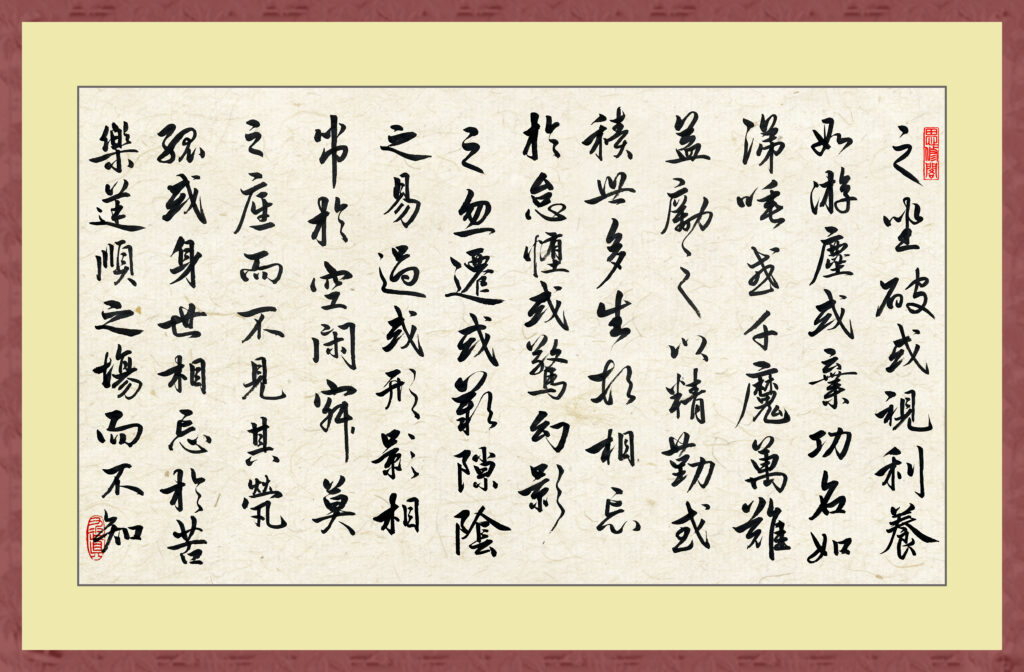 思修閣
之坐破或視利養
如游塵或棄功名如
涕唾或千魔萬難
益勵之以精勤或
積世多生頓相忘
於怠惰或驚幻影
之忽遷或歎隙陰
之易過或形影相
弔於空閑寂莫
之厓而不見其煢
孤或身世相忘於苦
樂逆順之場而不知